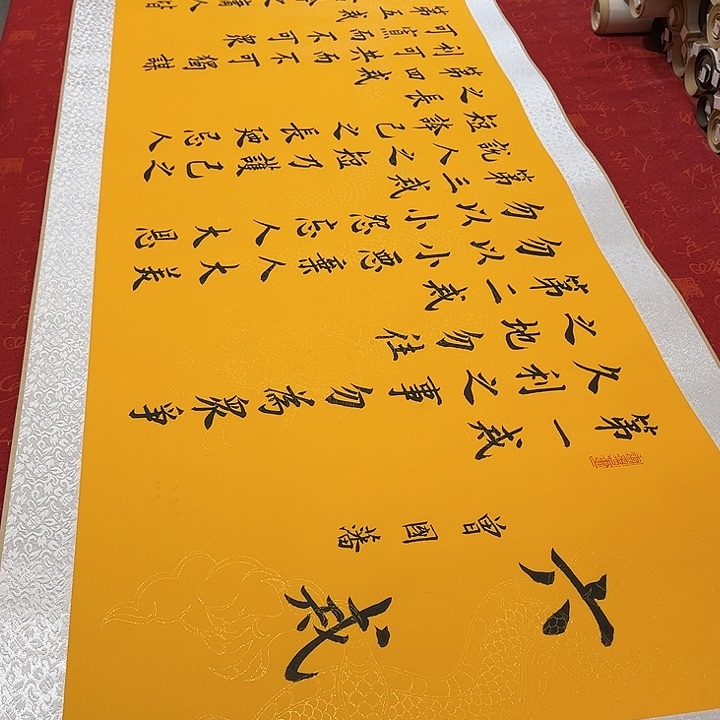 六戒
曾國藩
第一戒
久利之事勿為眾爭
之地勿往
第二戒
勿以小惡棄人大義
勿以小怨忘人大恩
第三戒
說人之短乃護己之
短誇己之長忌人
之長
第四戒
利可共而不可獨謀
可寡而不可眾
第五戒
之庸人皆